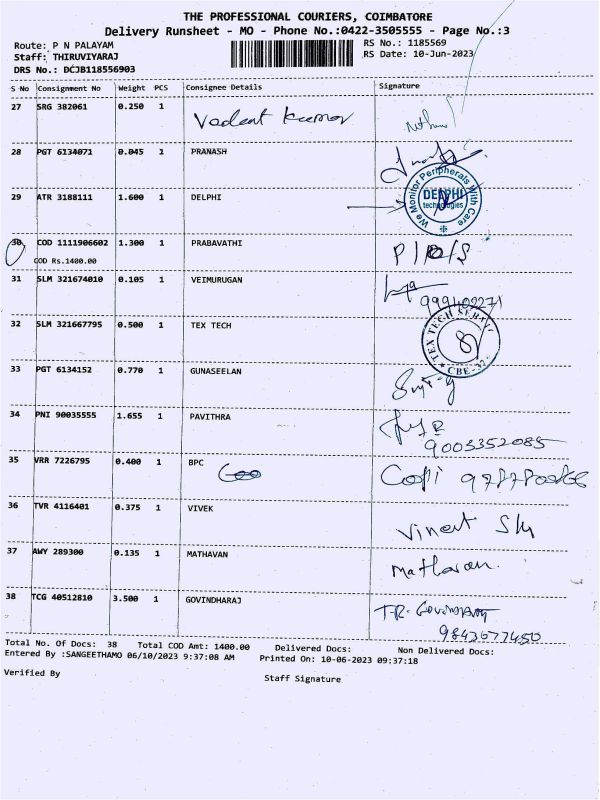 THE PROFESSIONAL COURIERS, COIMBATORE
Delivery Runsheet - MO - Phone No.:0422-3505555 - Page No.:3
Route: P N PALAYAM
RS No.: 1185569
Staff: THIRUVIYARAJ
RS Date: 10-Jun-2023
DRS No.: DCJB118556903
S No Consignment No Weight PCS Consignee Details Signature
27 SRG 382061 0.250 1 Vedant Kumar
28 PGT 6134071 0.045 1 PRANASH
29 ATR 3188111 1.600 1 DELPHI
We Monitor Peripherals With Care
DELPHI
technologies
30 COD 1111906602 1.300 1 PRABAVATHI
COD Rs.1400.00
31 SLM 321674010 0.105 1 VEIMURUGAN
32 SLM 321667795 0.500 1 TEX TECH
33 PGT 6134152 0.770 1 GUNASEELAN
34 PNI 90035555 1.655 1 PAVITHRA
9003352085
35 VRR 7226795 0.400 1 BPC Gopi
36 TVR 4116401 0.375 1 VIVEK
37 AWY 289300 0.135 1 MATHAVAN Mathavan
38 TCG 40512810 3.500 1 GOVINDHARAJ T.R. Govindharaj
9843677450
Total No. Of Docs: 38 Total COD Amt: 1400.00 Delivered Docs: Non Delivered Docs:
Entered By :SANGEETHAMO 06/10/2023 9:37:08 AM Printed On: 10-06-2023 09:37:18
Verified By Staff Signature